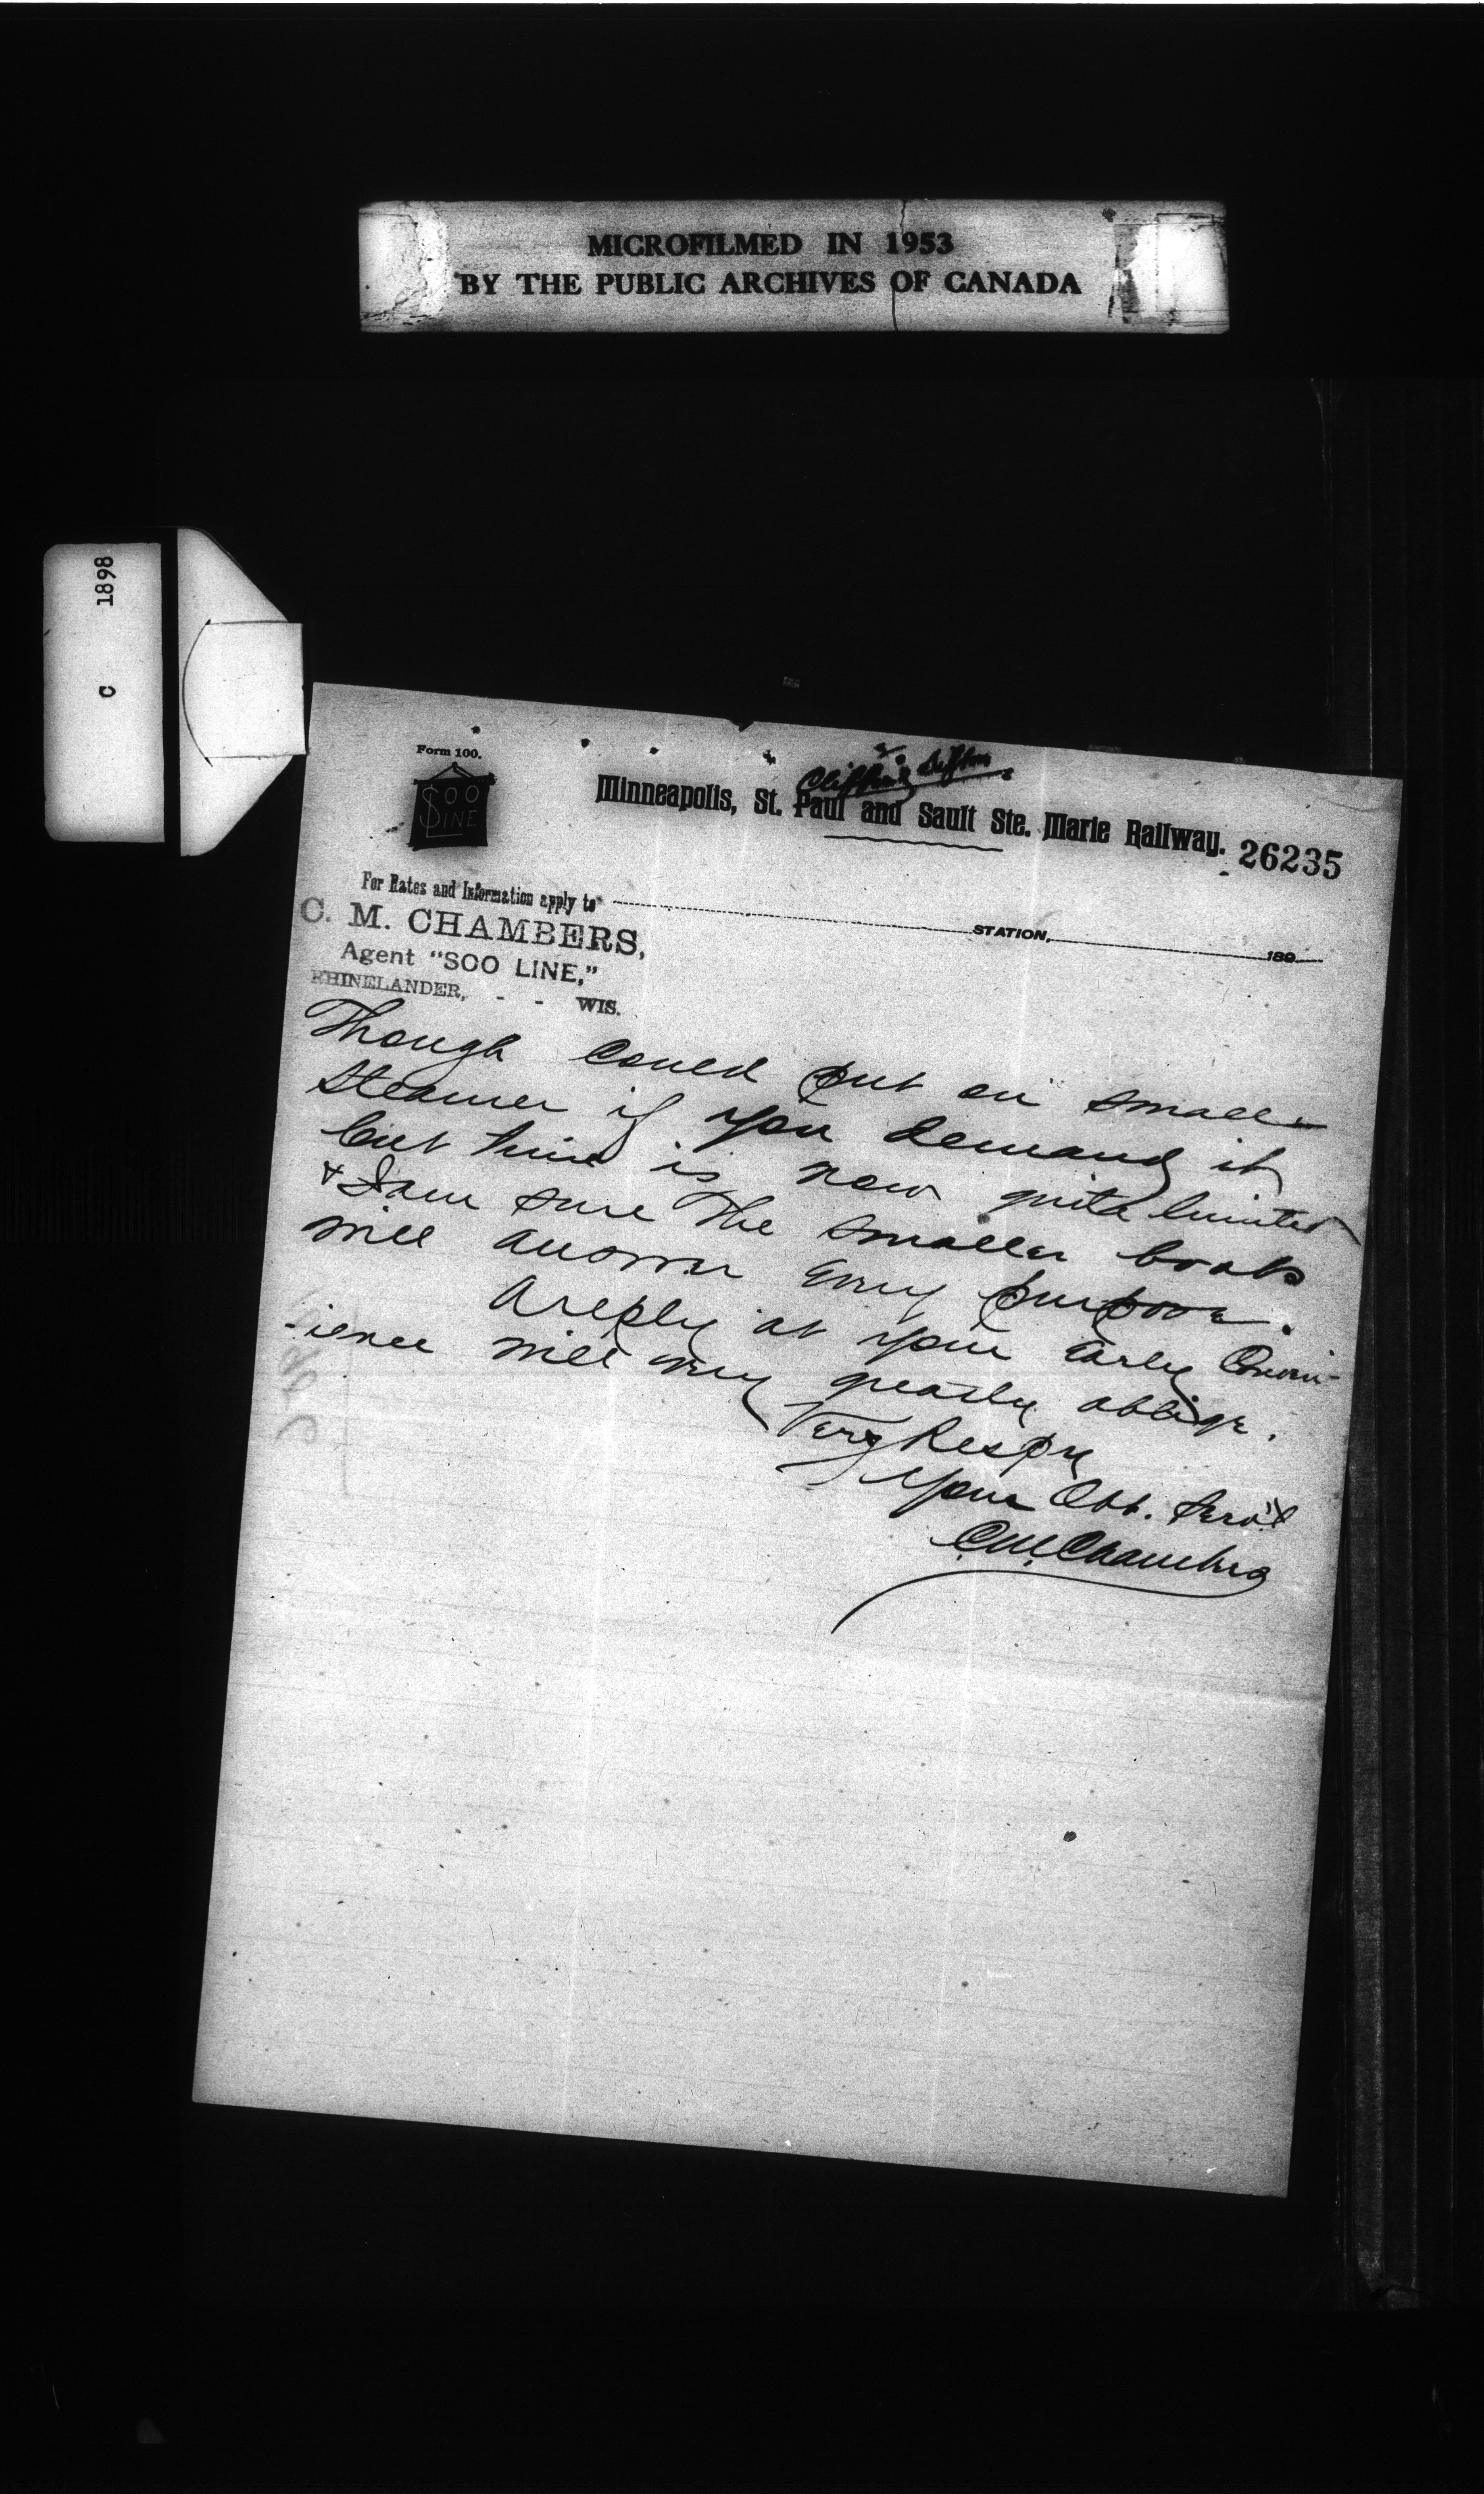 MICROFILMED IN 1953
BY THE PUBLIC ARCHIVES OF CANADA
C 1898
Form 100.
SOO LINE
Clifford Sifton
Minneapolis, St. Paul and Sault Ste. Marie Railway.
26235
For Rates and Information apply to
STATION, 189
C. M. CHAMBERS,
Agent "SOO LINE,"
RHINELANDER, - - WIS.
Though could put on small
steamer if you demand it
but time is now quite limited
& I am sure the smaller boats
will answer every purpose.
A reply at your early Conven-
-ience will very greatly oblige.
Very Respy
Your Obt. Servt
C. M. Chambers